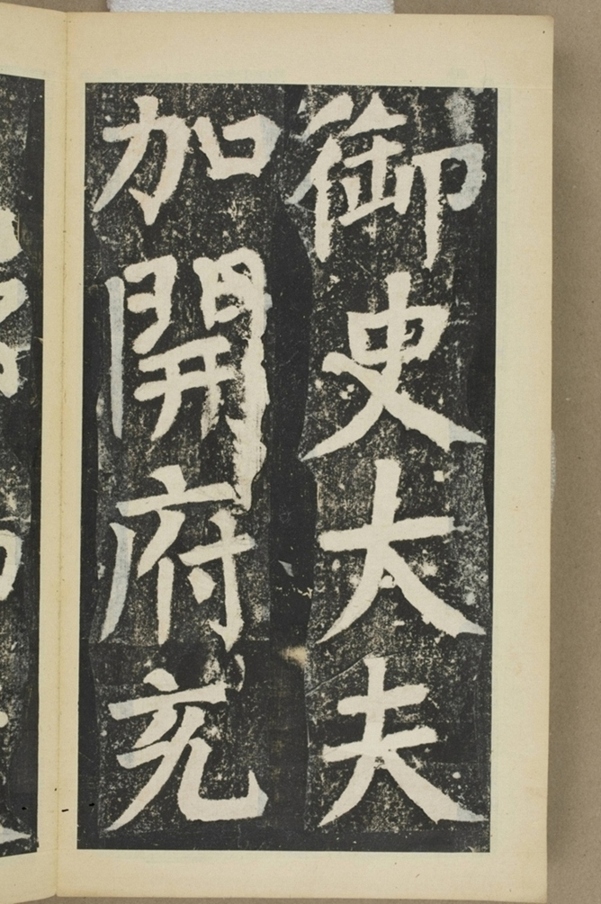 御史大夫
加開府充